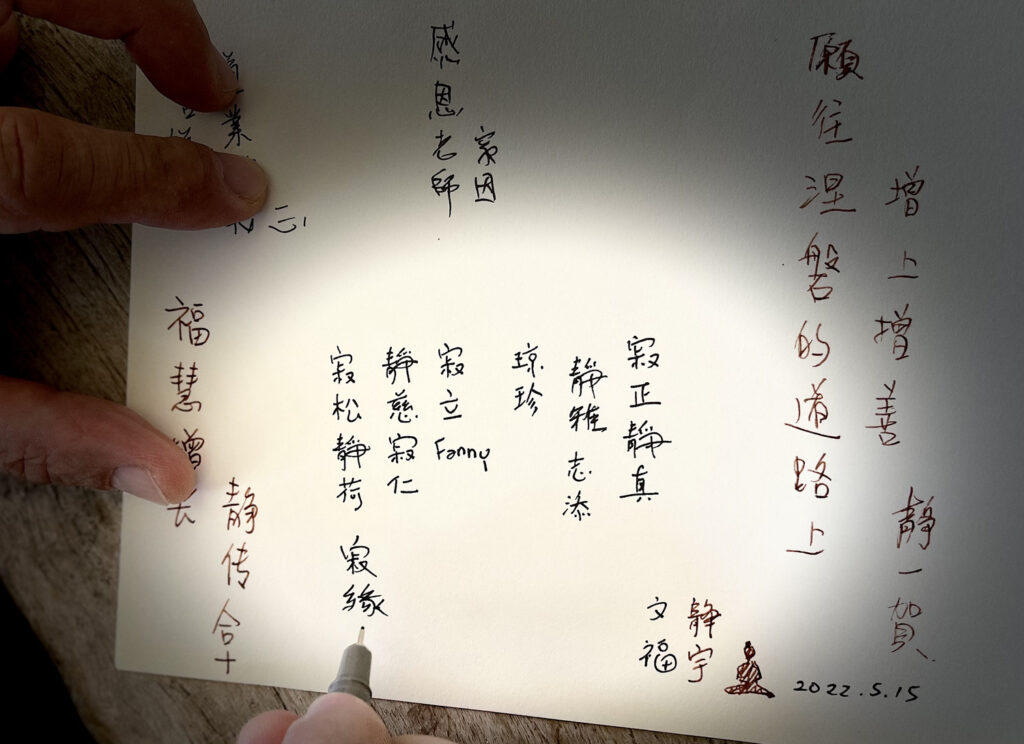 增上增善 靜一賀
願往涅磐的道路上
2022.5.15
静宇
文福
寂正靜真
靜雅志添
琼珍
家因
感恩老師
寂立 Fanny
靜慈寂仁
寂松靜荷 寂緣
業
静传合十
福慧增长